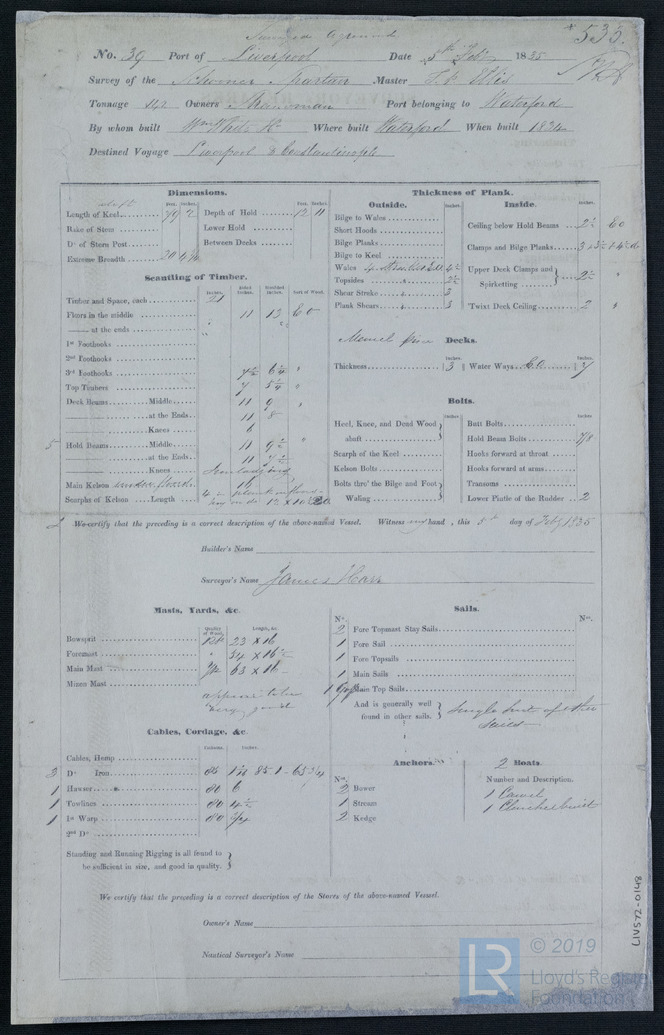 Surveyed Aground
*535.
No. 39 Port of Liverpool Date 5th Feby 1835
Survey of the Schooner Spartan Master
Tonnage 142 Owners Port belonging to Waterford
By whom built Wm White Where built Waterford When built 1834
Destined Voyage Liverpool & Constantinople
Dimensions.
Feet. Inches.
Length of Keel 79 2
Rake of Stem
Do of Stern Post
Extreme Breadth 20
Feet. Inches.
Depth of Hold 12 11
Lower Hold
Between Decks
Scantling of Timber.
Timber and Space, each 21
Floors in the middle 11 12 EO
—— at the ends
1st Foothooks
2nd Foothooks
3rd Foothooks 7½
Top Timbers 7
Deck Beams Middle 11 9
—— at the Ends 11 8
—— Knees 6
5 Hold Beams Middle 11 9½
—— at the Ends 11 7½
—— Knees
Main Kelson 16
Scarphs of Kelson Length
Thickness of Plank.
Outside.
Inches.
Bilge to Wales
Short Hoods
Bilge Planks
Bilge to Keel
Wales 4 Strakes 4½
Topsides 2½
Shear Stroke 3
Plank Shears 3
Inside.
Inches.
Ceiling below Hold Beams 2½ EO
Clamps and Bilge Planks
Upper Deck Clamps and Spirketting 2½ "
Twixt Deck Ceiling 2 "
Memel pine Decks.
Inches.
Thickness 3
Water Ways 7
Bolts.
Inches.
Heel, Knee, and Dead Wood abaft
Scarph of the Keel
Kelson Bolts
Bolts thro' the Bilge and Foot Waling
Inches.
Butt Bolts
Hold Beam Bolts 7/8
Hooks forward at throat
Hooks forward at arms
Transoms
Lower Pintle of the Rudder 2
We certify that the preceding is a correct description of the above-named Vessel. Witness my hand, this 5th day of Feby 1835
Builder's Name
Surveyor's Name James Karr
Masts, Yards, &c.
Quality of Wood. Length, &c.
Bowsprit 23 x 16
Foremast " 54 x 16½
Main Mast 63 x 16
Mizen Mast
appear to be very good
Sails.
No.
2 Fore Topmast Stay Sails
1 Fore Sail
1 Fore Topsails
1 Main Sails
1 Main Top Sails
And is generally well found in other sails.
Single suit of other sails
Cables, Cordage, &c.
Fathoms. Inches.
Cables, Hemp
2 Do Iron
1 Hawser 90 6
1 Towlines 90 4½
1 1st Warp 80
2nd Do
Standing and Running Rigging is all found to be sufficient in size, and good in quality.
Anchors.
No.
2 Bower
1 Stream
2 Kedge
2 Boats.
Number and Description.
1 Carvel
1 Clincher built
We certify that the preceding is a correct description of the Stores of the above-named Vessel.
Owner's Name
Nautical Surveyor's Name
LIV572-0148
LR
© 2019
Lloyd's Register
Foundation